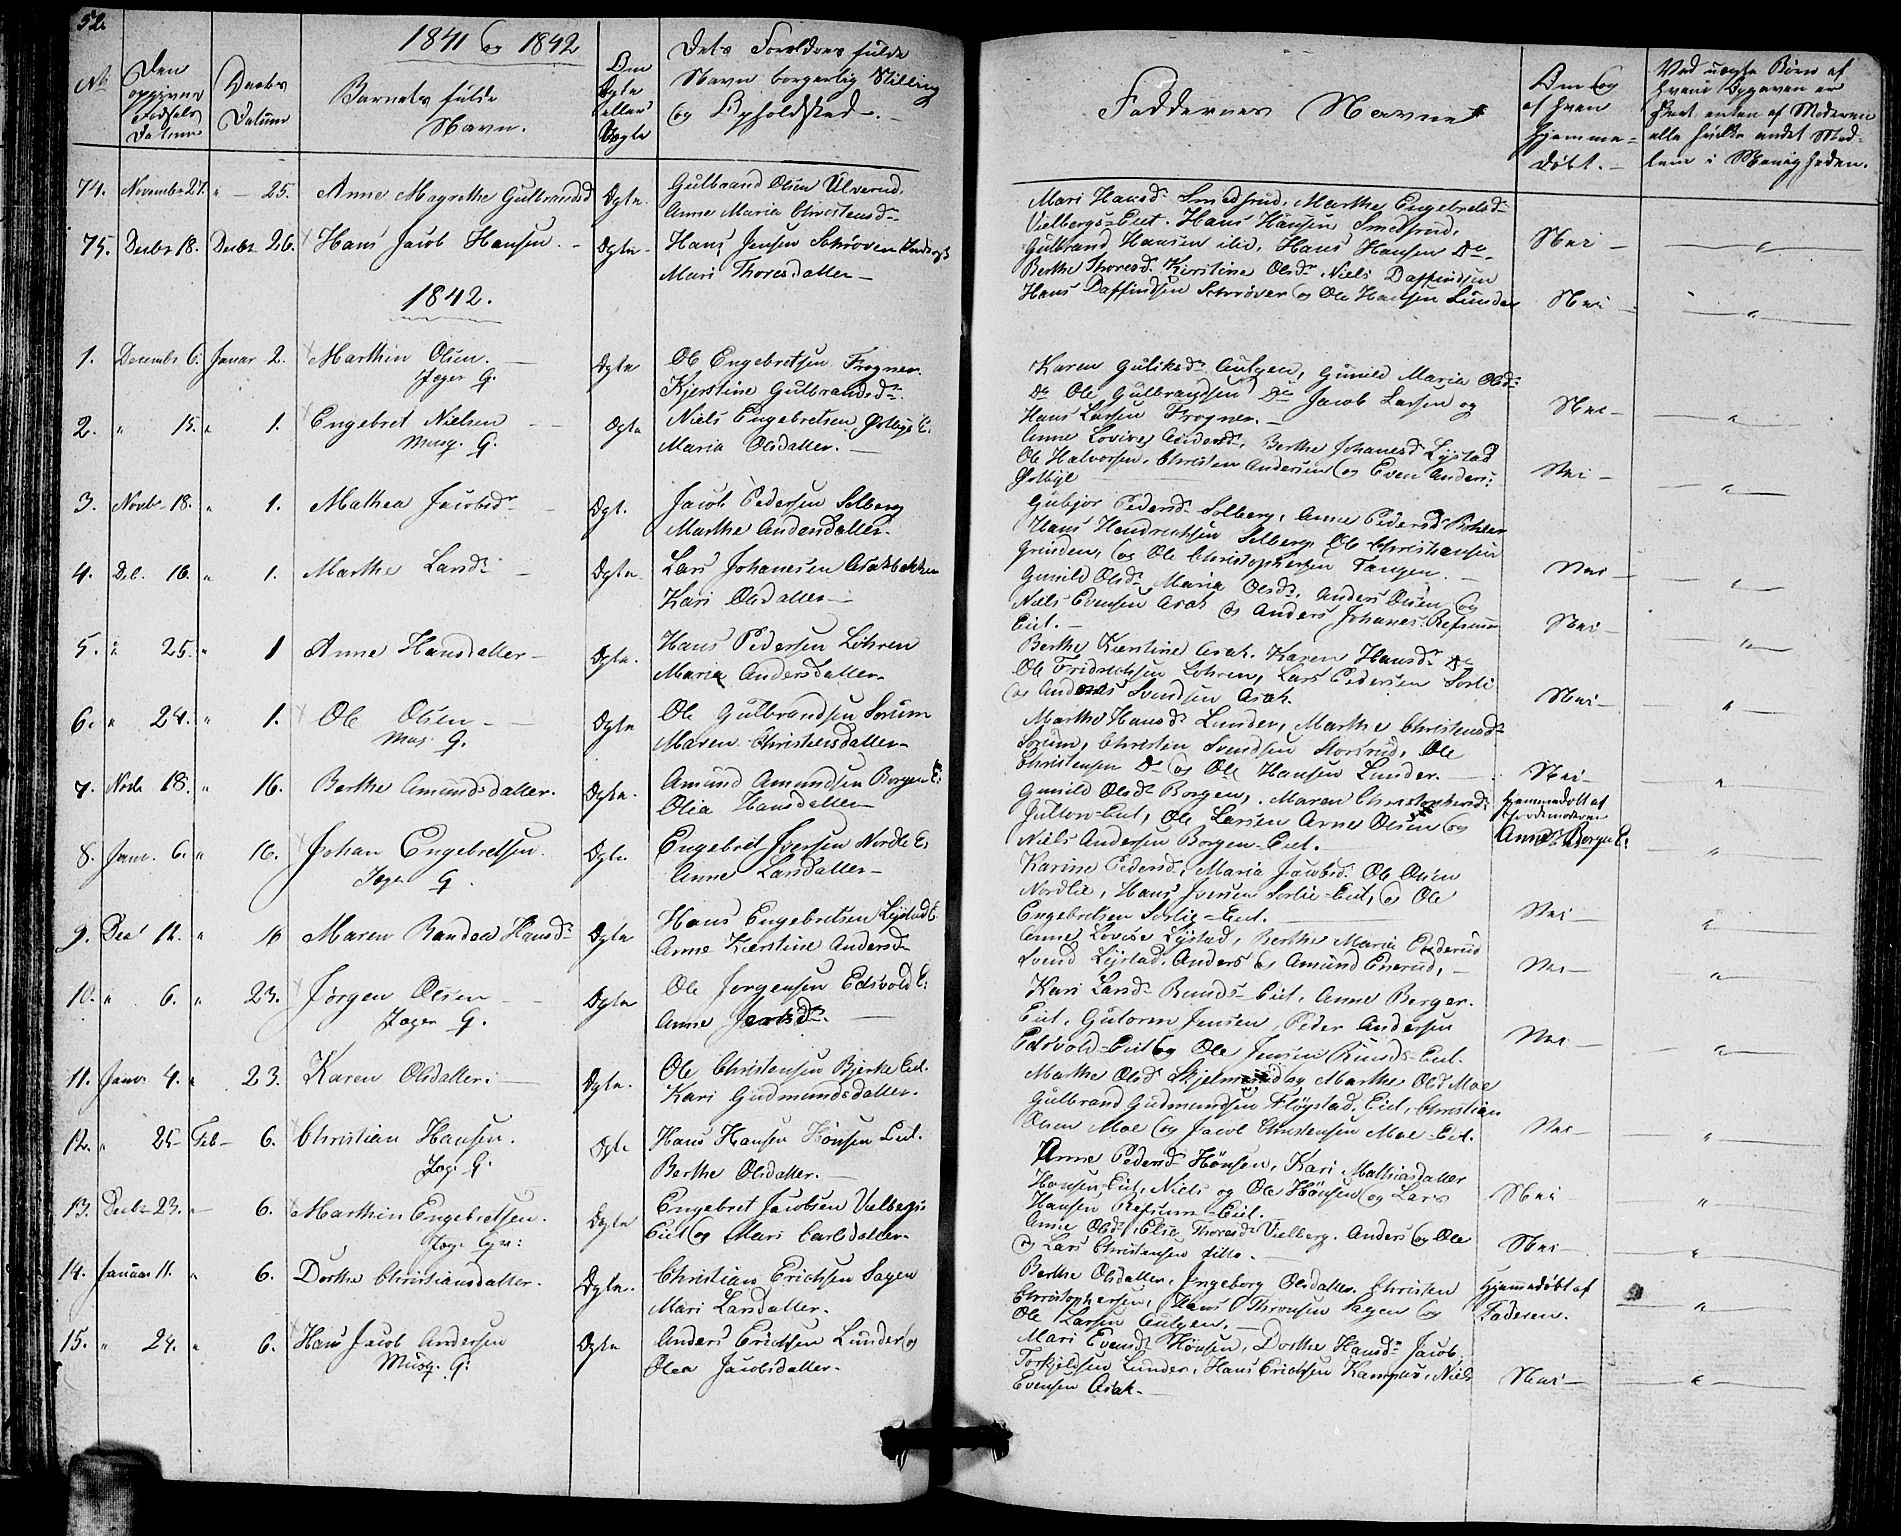 52.
1841 og 1842
No
Den opgivne Fødsels Datum
Daabs Datum
Barnets fulde Navn.
Om Ægte eller Uægte
Dets Forældres fulde Navn borgerlig Stilling og Opholdsted.
Faddernes Navne
Om og af hvem hjemme-døbt.
Ved uægte Børn af hvem Opgaven er skeet enten af Moderen eller hvilke andet Medlem i Menigheden.
74. Novembr 27. " — 25. Anne Magrethe Gulbrandsd Ægte. Gulbrand Olsen Ulverud.
Anne Maria Christensdr
Mari Hansdr Smedsrud, Marthe Engebretsdr
Vielbergs-Eiet. Hans Hansen Smedsrud,
Gulbrand Hansen ibid, Hans Hansen Do. Nei — "
75. Decbr 18. Decbr 26. Hans Jacob Hansen. Ægte Hans Jensen Schrøver
Mari Thoresdatter —
Berthe Thoresd. Kirstine Olsdr. Niels Daffindsen
Hans Daffindsen Schrøver og Ole Hansen Lunder Nei — "
1842.
1. Decembr 6. Januar 2. Marthin Olsen. Ægte Ole Engebretsen Frogner.
Joger G. Kjerstine Gulbrandsdr.
Karen Guliksdr , Gunild Maria Olsdr
Do Ole Gulbrandsen Do Jacob Larsen og
Hans Larsen Frogner. — Nei — "
2. " 15. " 1. Engebret Nielsen Ægte Niels Engebretsen Østbye E.
Musg. G. Maria Olsdatter. —
Anne Lovise Andersdr, Berthe Johanesd Lystad
Ole Halvorsen, Christen Andersen og Even Anders:
Østbye Nei — "
3. Novbr 18. " 1. Mathea Jacobsdr Ægt. Jacob Pedersen Solberg
Marthe Andersdatter.
Gubjør Pedersdr Solberg, Anne Pedersdr
Hans Hendrichsen Solberg Ole Christiansen
Grinden, og Ole Christophersen Tangen. Nei — "
4. Dec. 16. " 1. Marthe Larsdr Ægte Lars Johanesen Asakbakken
Kari Olsdatter —
Gunild Olsdr Maria Olsdr, Anders Olsen og
Niels Evensen Asak og Anders Johanes. Refsum
Eiet. — Nei — "
5. " 25. " 1 Anne Hansdatter — Ægte. Hans Pedersen Løhren
Maria Andersdatter.
Berthe Kierstine Asak. Karen Hansdr Do
Ole Fridrichsen Løhren, Lars Pedersen Sorli
og Anders Svendsen Asak. Nei — "
6. " 24. " 1. Ole Olsen — Ægte Ole Gulbrandsen Sørum
Mus. G. Maren Christensdatter
Marthe Hansdr Lunder, Marthe Christensdr
Sørum, Christen Svendsen Storsrud, Ole
Christensen Do og Ole Hansen Lunder. — Nei — "
7. Novbr 18. " 16. Berthe Amundsdatter. Ægte. Amund Amundsen Borgen E:
Olia Hansdatter
Gunild Olsdr Borgen, Maren Christophersdr
Julton-Eiet, Ole Larsen Arne Olsen og
Niels Andersen Borgen-Eiet.
Hjemmedøbt af Jordemoderen Anne Borgen E: "
8. Janr. 6. " 16. Johan Engebretsen. Ægte. Engebret Iversen Nordli E:
Joger G. Anne Larsdatter —
Karine Pedersdr, Maria Jacobsdr Ole Olsen
Nordlie, Hans Iversen Sorlie-Eiet, og Ole
Engebretsen Sorlie-Eiet. Nei — "
9. Decbr 11. " 16 Maren Randea Hansdr Ægte Hans Engebretsen Lystad E.
Anne Kierstine Andersdr
Anne Lovise Lystad, Berthe Maria
Svend Lystad, Anders og Amund Enerud, — Nei — "
10. " 6. " 23. Jørgen Olsen Ægte Ole Jørgensen Edsvold E:
Joger G. Anne
Kari Larsdr Runds-Eiet, Anne Berger.
Eiet, Gutorm Jensen, Peder Andersen
Edsvold-Eiet og Ole Jensen Runds-Eiet. Nei — "
11. Janr. 4. " 23. Karen Olsdatter: Ægte. Ole Christensen Bjerke Eiet.
Kari Gudmundsdatter.
Marthe Olsdr og Marthe Olsd Moe
Gulbrand Gudmundsen Fløgstad. Eiet, Christian
Olsen Moe og Jacob Christensen Moe-Eiet. Nei — "
12. " 25 Feb — 6. Christian Hansen. Ægte Hans Hansen Hønsen Eiet.
Jog. G. Berthe Olsdatter. —
Anne Pedersdr Hønsen, Kari Mathiasdatter
Hønsen-Eiet, Niels og Ole Hønsen og Lars
Hansen Refsum-Eiet. Nei — "
13. Decbr 23. " 6. Marthin Engebretsen. Ægte Engebret Jacobsen Vielbergs-
Eiet og Mari Carlsdatter.
Anne Olsdr, Elie Thoresdr Vielberg. Anders og Ole
og Lars Christensen ditto. — Nei — "
14. Januar 11. " 6. Dorthe Christiansdatter. Ægte. Christian Erichsen Sagen
Mari Larsdatter.
Berthe Olsdatter, Ingeborg Olsdatter. Christen
Christophersen, Hans Thronsen Sagen og
Ole Larsen
Hjemmedøbt af Faderen. "
15. " 24. " 6. Hans Jacob Andersen Ægte Anders Erichsen Lunder og
Musg. G. Olea Jacobsdatter.
Mari Evensdr Hønsen, Dorthe Hansdr Jacob
Torkjelsen Lunder, Hans Erichsen Kampus, Niels
Evensen Asak — Nei — "